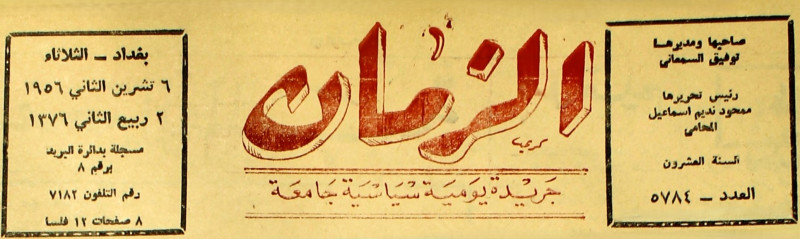 صاحبها ومديرها
توفيق السمعاني
رئيس تحريرها
محمود نديم اسماعيل
المحامي
السنة العشرون
العدد – ٥٧٨٤
الزمان
كريم
جريدة يومية سياسية جامعة
بغداد – الثلاثاء
٦ تشرين الثاني ١٩٥٦
٢ ربيع الثاني ١٣٧٦
مسجلة بدائرة البريد
برقم ٨
رقم التلفون ٧١٨٢
٨ صفحات ١٢ فلسا